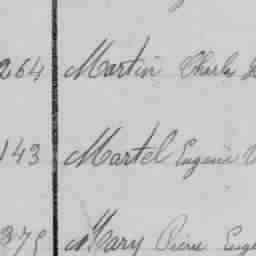 264 Martin Charle
143 Martel Eugene
375 Mary Pierre Euge